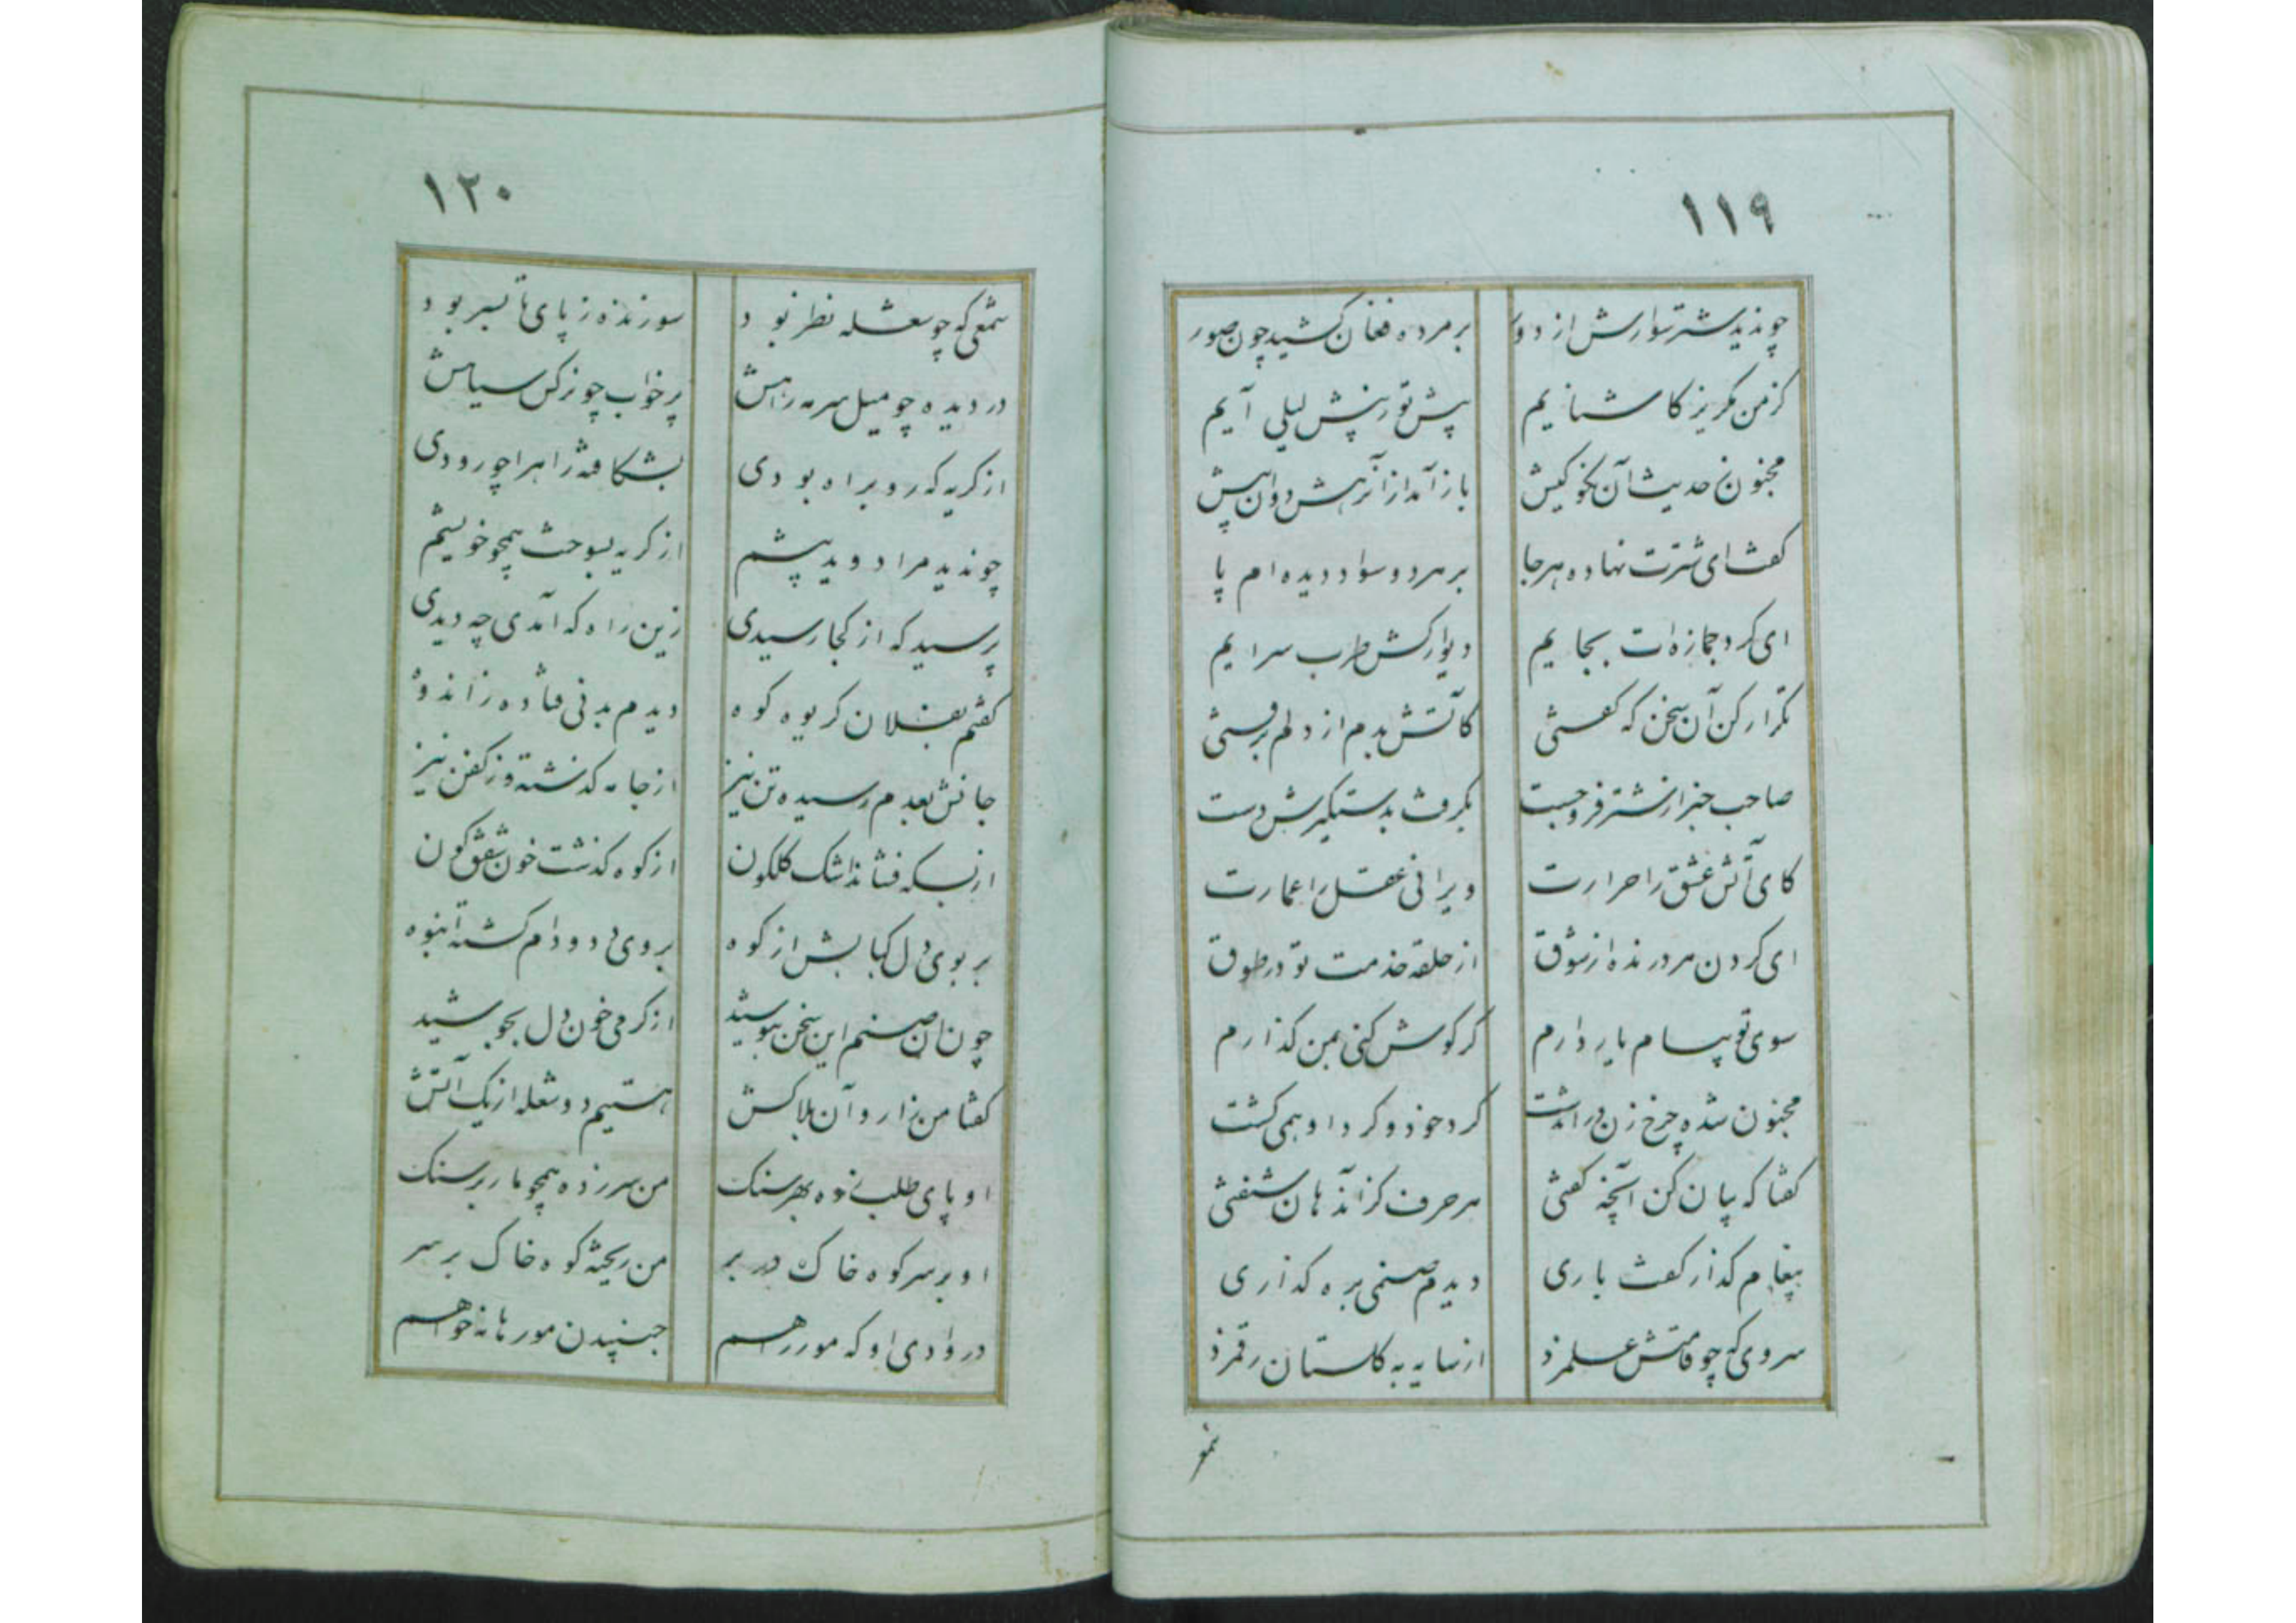 ۱۱۹
چو ندید شتر سوارش از دور بر مرده فغان کشید چون صور
کز من مگریز کاشنایم پیش تو ز پیش لیلی آیم
مجنون ز حدیث آن نکو کیش باز آمد از آن رهش دوان پیش
گفت ای شترت نهاده هر جا بر هر دو سواد دیده‌ام پا
ای گرد جمازه‌ات بجایم دیوار کش طرب سرایم
تکرار کن آن سخن که گفتی کاتش بدم از دلم برفتی
صاحب خبر از شتر فرو جست بگرفت بدستگیریش دست
کای آتش عشق را حرارت ویرانی عقل را عمارت
ای گردن هر درنده از شوق از حلقه خدمت تو در طوق
سوی تو پیام یار دارم گر گوش کنی بمن گذارم
مجنون شده چرخ زن در آن دشت گرد خود و گرد او همی گشت
گفتا که بیان کن آنچه گفتی هر حرف کز آن دهان شنفتی
پیغام گذار گفت باری دیدم صنمی بره گذاری
سروی که چو قامتش علم زد از سایه به گلستان رقم زد
۱۲۰
شمعی که چو شعله نظر بود سوزنده ز پای تا بسر بود
در دیده چو میل سرمه راهش پر خواب چو نرگس سیاهش
از گریه که رو براه بودی بشکافته راه را چو رودی
چو ندید مرا دوید پیشم از گریه بسوخت همچو خویشم
پرسید که از کجا رسیدی زین راه که آمدی چه دیدی
گفتم بفلان کریوه کوه دیدم بدنی فتاده ز اندوه
جانش بعدم رسیده تن نیز از جامه گذشته وز کفن نیز
از بسکه فشاند اشک گلگون از کوه گذشت خون شفق گون
بر بوی دل کبابش از کوه بر وی دد و دام گشته انبوه
چون آن صنم این سخن نیوشید از گرمی خون دل بجوشید
گفتا من زار و آن بلاکش هستیم دو شعله از یک آتش
او پای طلب زده بهر سنگ من سر زده همچو مار بر سنگ
او بر سر کوه خاک در بر من ریخته کوه خاک بر سر
در وادی او که مور رهم جنبیدن مور خواهم